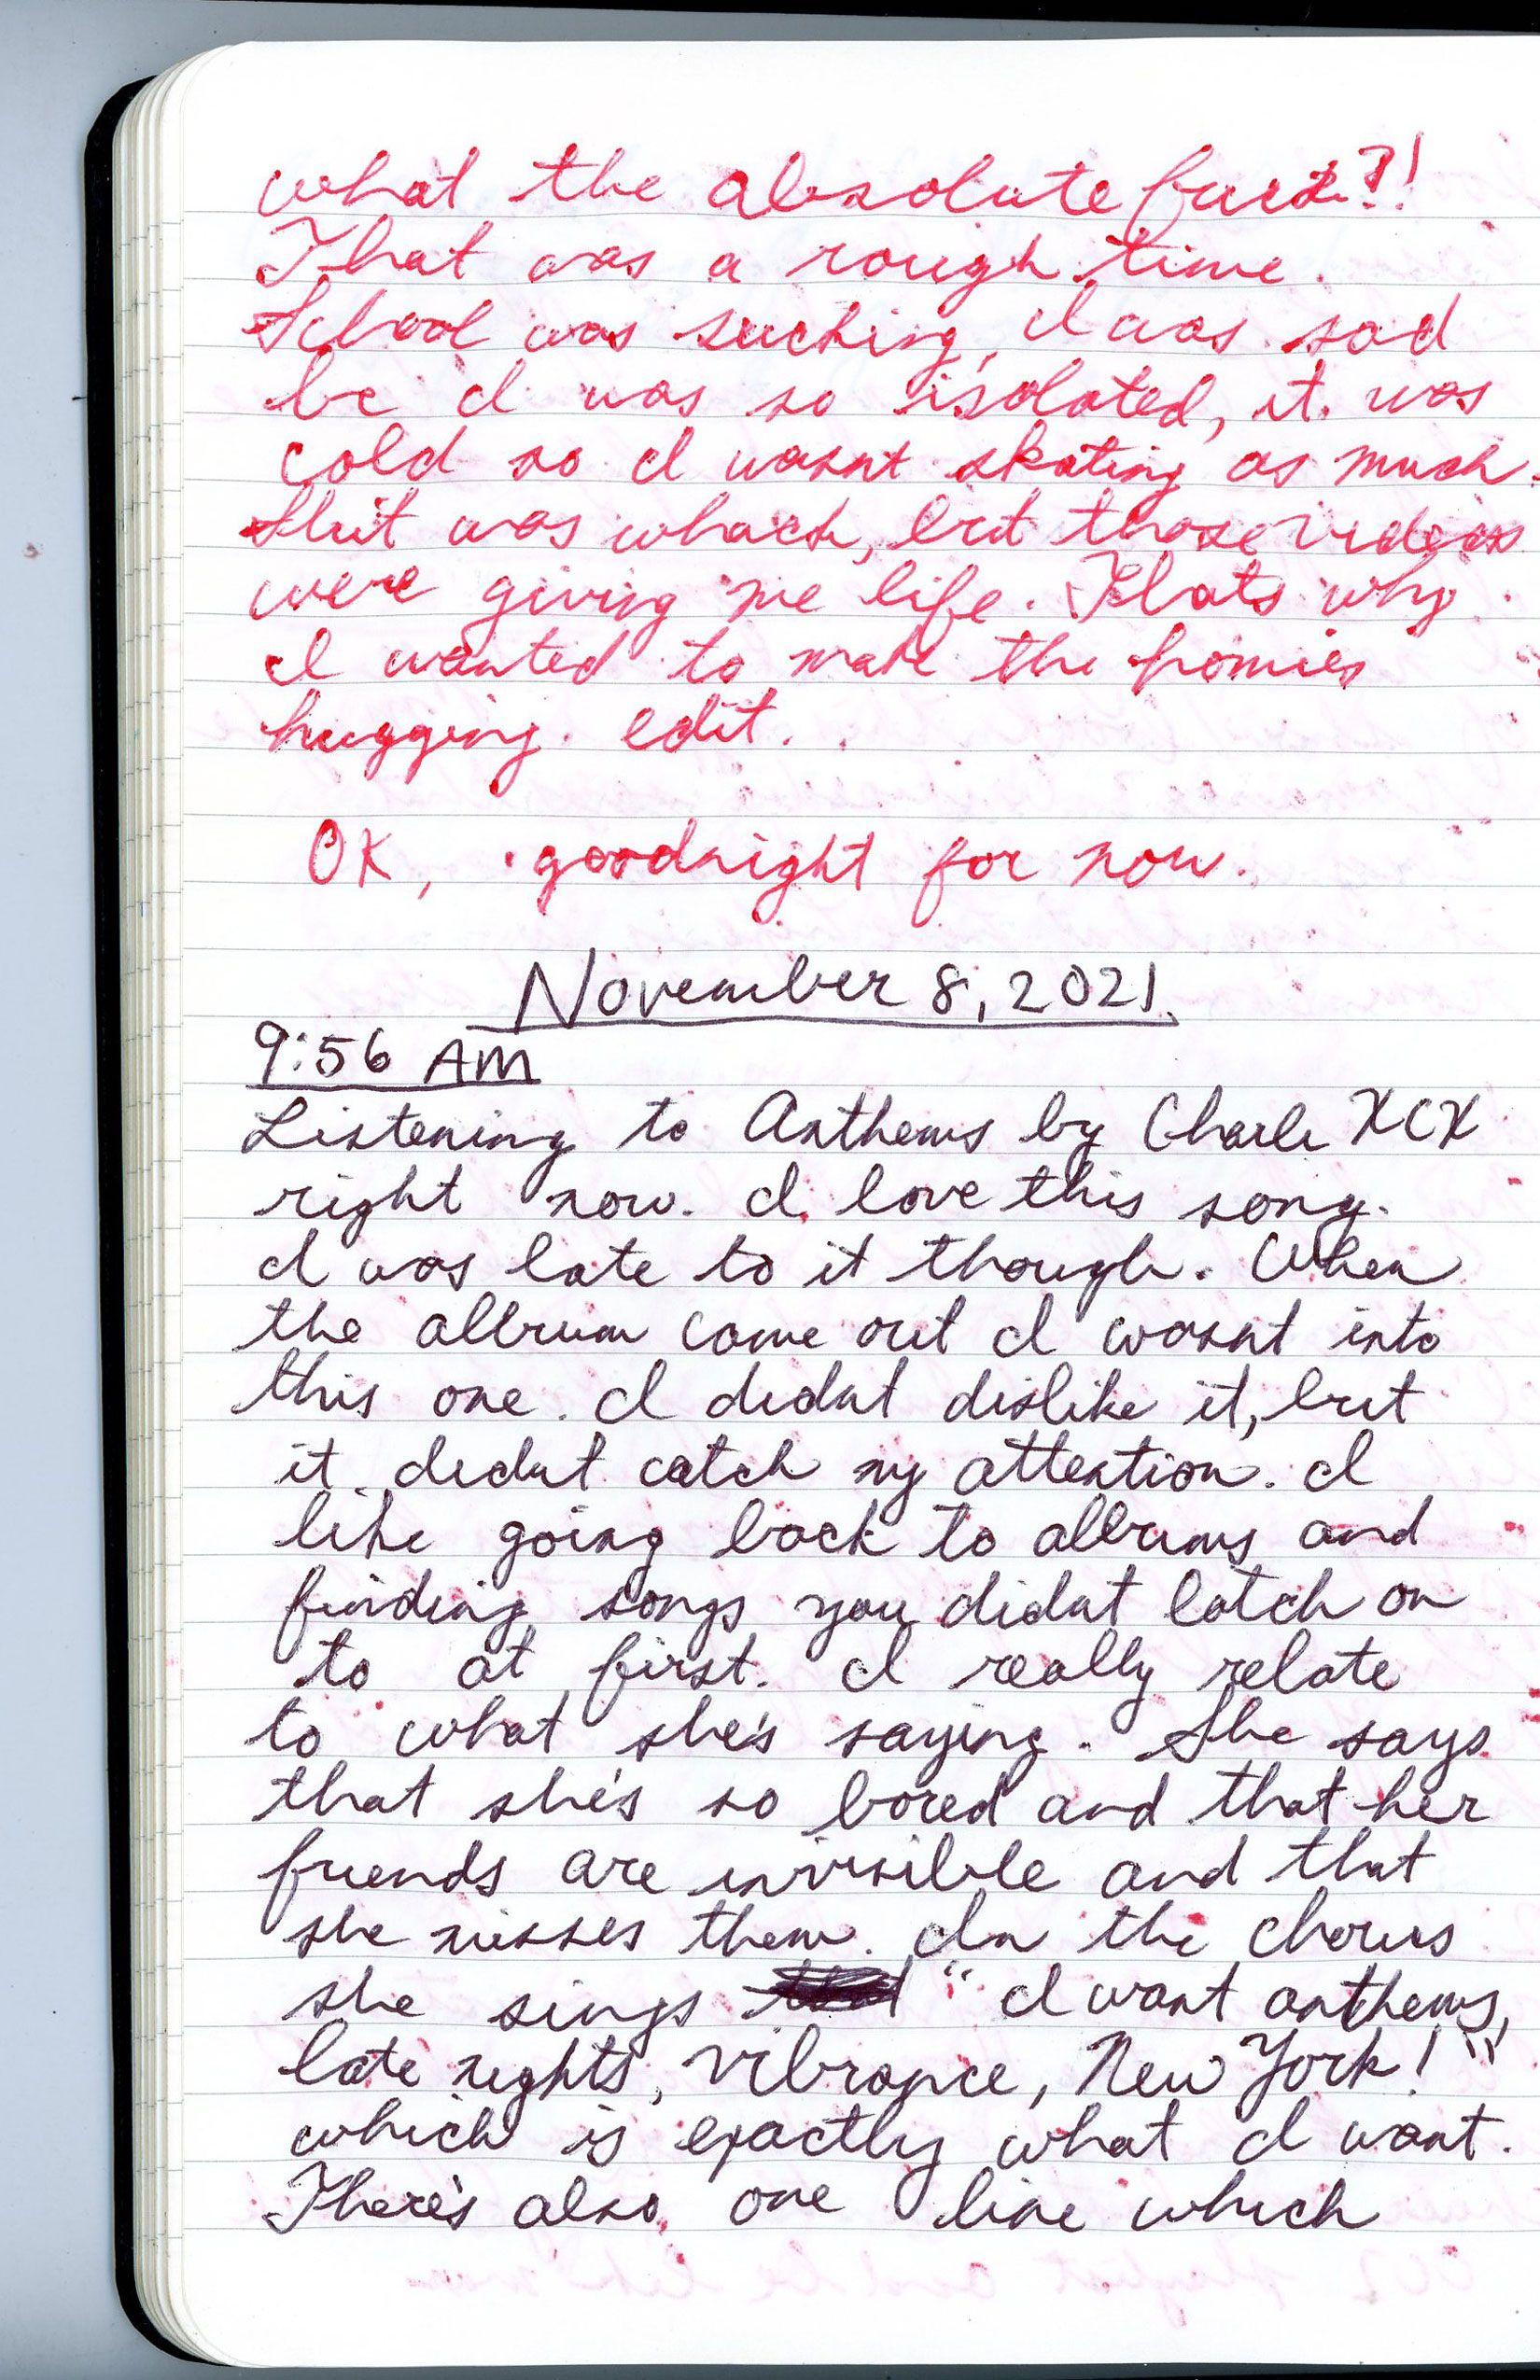 what the absolute fuck?!
That was a rough time.
School was sucking, I was sad
bc I was so isolated, it was
cold so I wasnt skating as much.
Shit was whack, but those videos
were giving me life. Thats why
I wanted to make the homies
hugging edit.
OK, goodnight for now.
November 8, 2021
9:56 AM
Listening to Anthems by Charli XCX
right now. I love this song.
I was late to it though. When
the album came out I wasnt into
this one. I didnt dislike it, but
it didnt catch my attention. I
like going back to albums and
finding songs you didnt latch on
to at first. I really relate
to what she's saying. She says
that she's so bored and that her
friends are invisible and that
she misses them. In the chorus
she sings "I want anthems,
late nights, vibrance, New York!"
which is exactly what I want.
There's also one line which